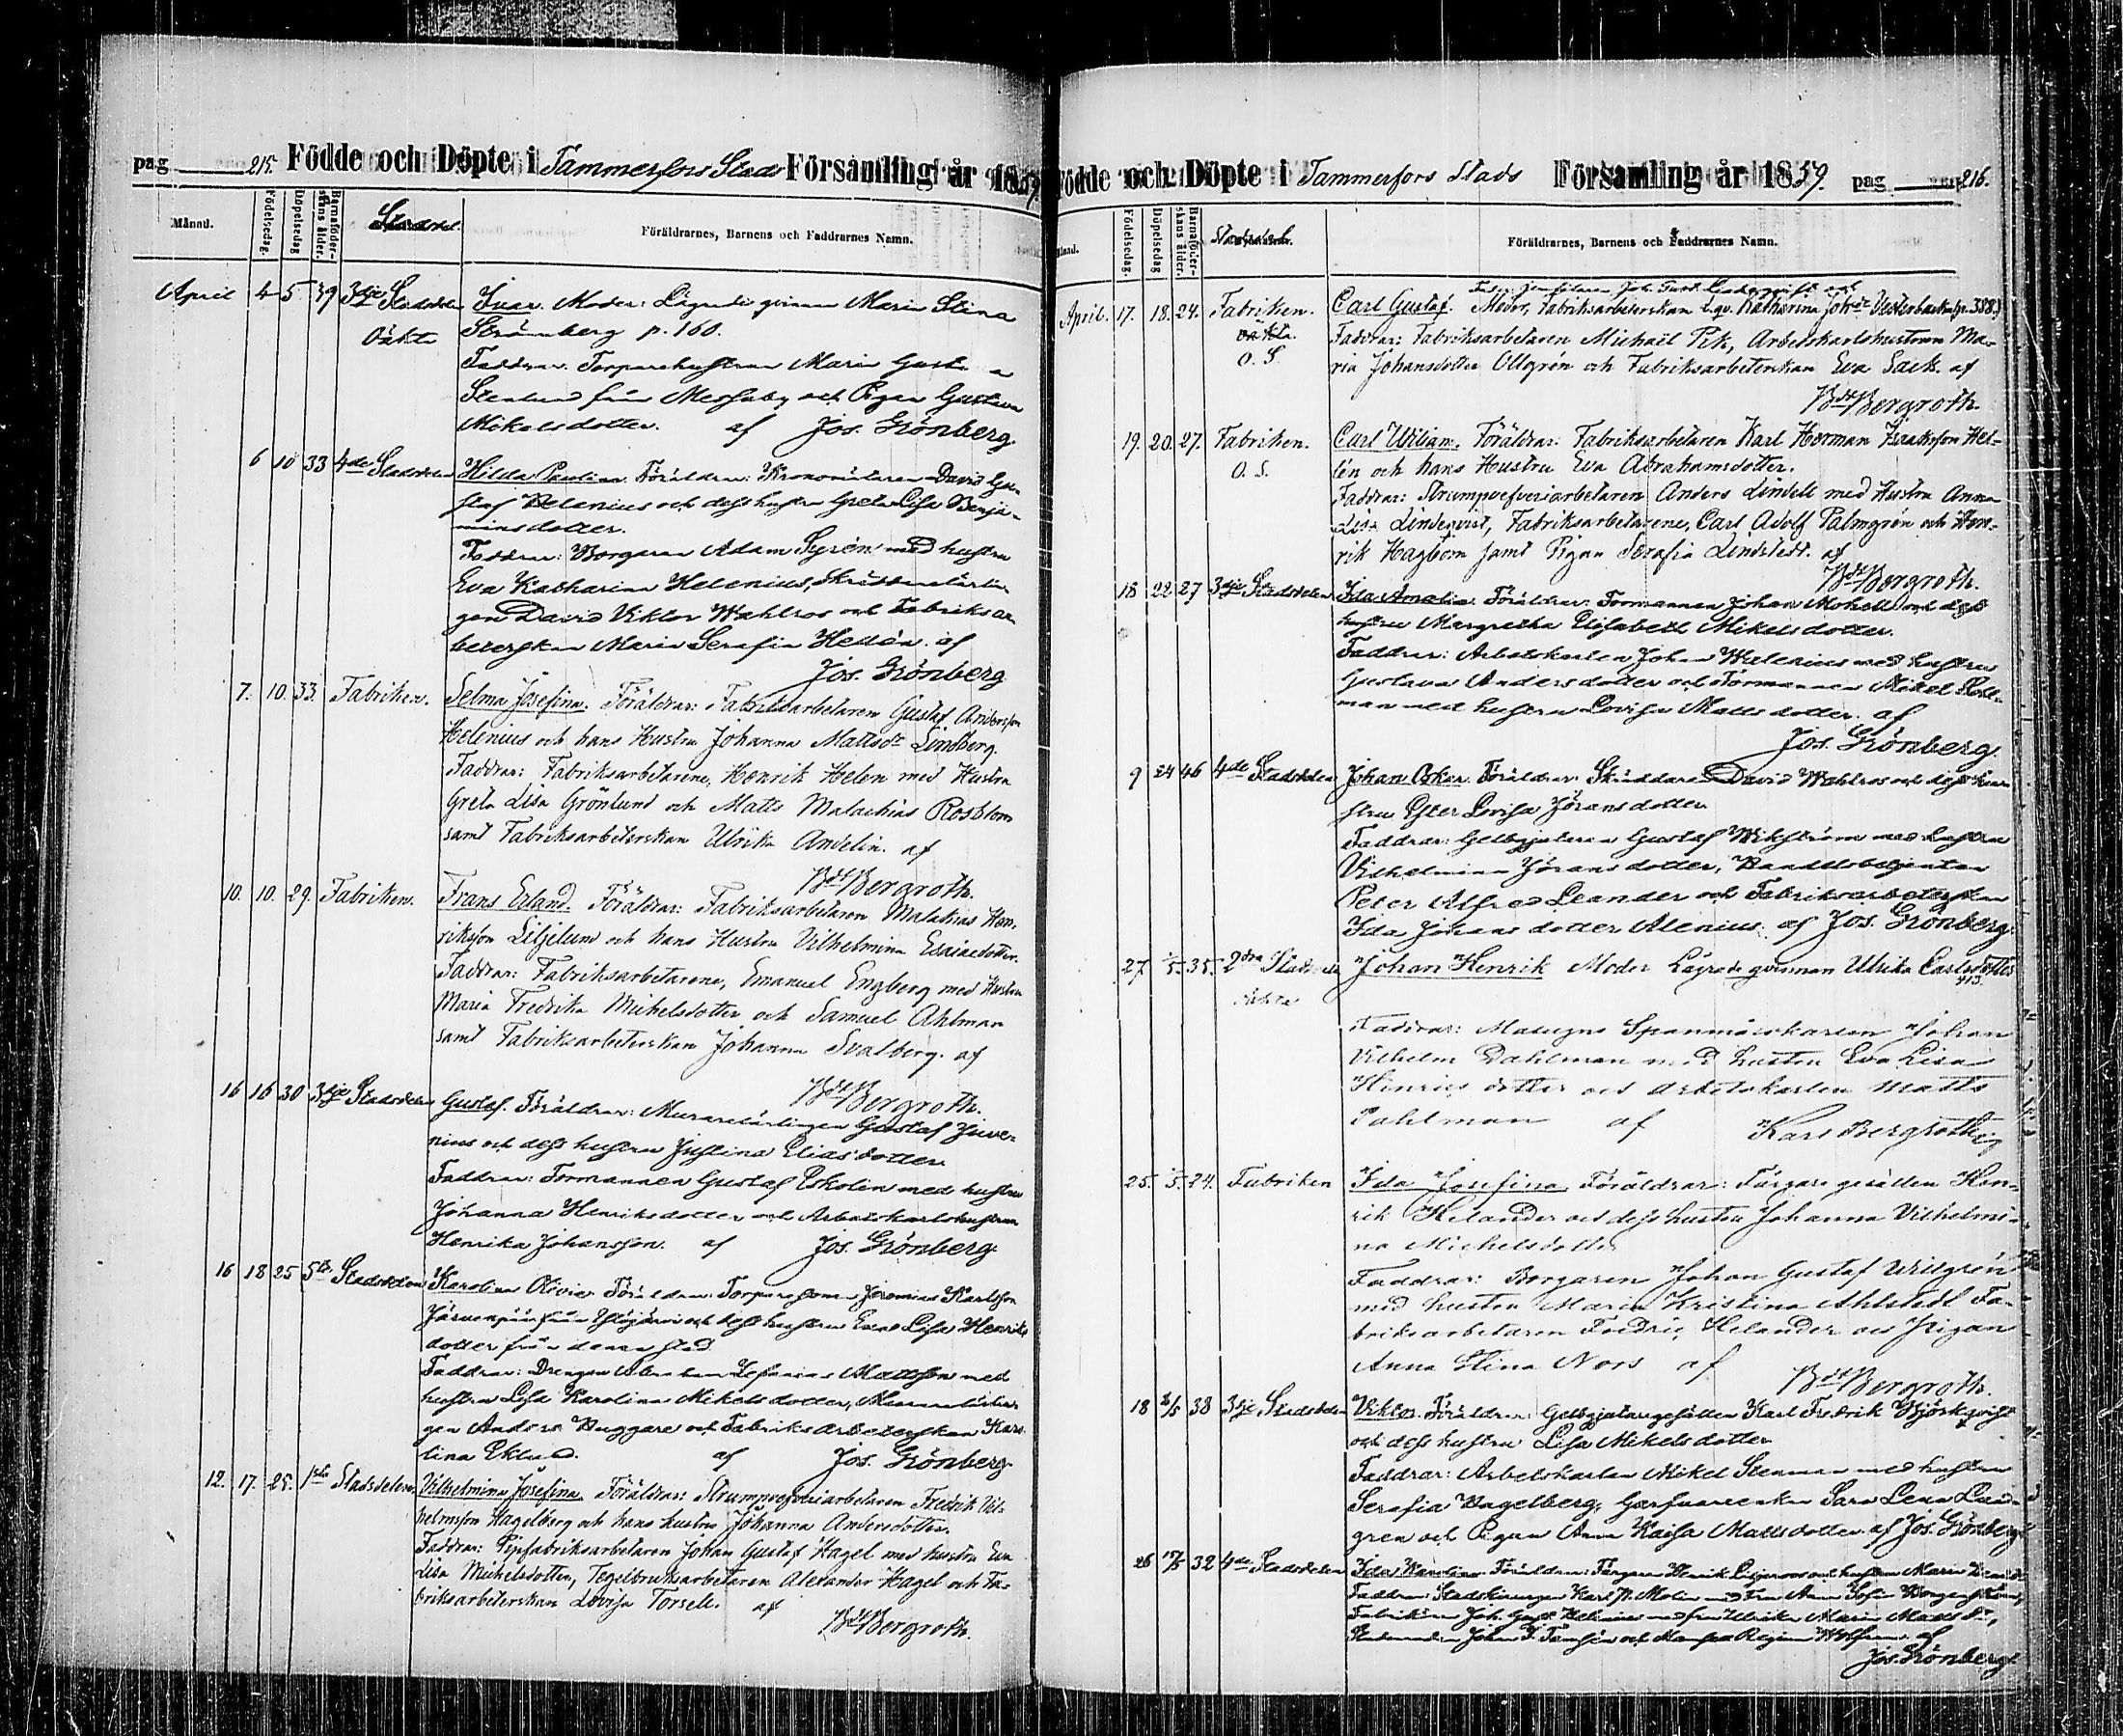 pag 215. Födde och Döpte i Tammerfors Stads Församling år 1859.
Månad.
Födelsedag.
Döpelsedag
Barnaföderskans ålder.
Stadsdel.
Föräldrarnes, Barnens och Faddrarnes Namn.
April 4 5 39 3dje Stadsdelen Ivar. Moder: Lägrade qvinnan Maria Stina
Oäkta Strömberg p. 160.
Faddrar: Torparehustrun Maria Gust.
Stenlund från Messuby och Pigan Gustava
Mikelsdotter. af Jos. Grönberg.
6 10 33 4de Stadsdelen Hilda Paulina. Föräldrar: Kronomätaren David Gu-
staf Helenius och dess hustru Greta Lisa Benja-
minsdotter.
Faddrar: Borgaren Adam Syrén med hustru
Eva Katharina Helenius, Skräddarelärlin-
gen David Viktor Wahlros och Fabriksar-
beterskan Maria Serafia Hedén. af
Jos. Grönberg
7. 10. 33. Fabriken. Selma Josefina. Föräldrar: Fabriksarbetaren Gustaf Andersson
Helenius och hans Hustru Johanna Mattsdr Lindberg.
Faddrar: Fabriksarbetarene, Henrik Helen med Hustru
Greta Lisa Grönlund och Matts Malachias Rosblom
samt Fabriksarbeterskan Ulrika Andelin. af
Bdt Bergroth.
10. 10. 29. Fabriken. Frans Erland. Föräldrar: Fabriksarbetaren Malakias Hen-
riksson Liljelund och hans Hustru Vilhelmina Esaiaedotter.
Faddrar: Fabriksarbetarene, Emanuel Engberg med Hustru
Maria Fredrika Michelsdotter och Samuel Ahlman
samt Fabriksarbeterskan Johanna Svalberg. af
Bdt Bergroth.
16 16 30 3dje Stadsdelen Gustaf. Föräldrar: Murarelärlingen Gustaf Juve-
nius och dess hustru Justina Eliasdotter.
Faddrar: Formannen Gustaf Eskolin med hustru
Johanna Henriksdotter och Arbetskarlshustrun
Henrika Johansson. af Jos. Grönberg
16 18 25 5te Stadsdelen Karolina Olivia. Föräldrar: Torparesonen Jeremias Karlsson
Järvenpää från Ylöjärvi och dess hustru Eva Lisa Henriks
dotter från denna stad.
Faddrar: Drengen Abraham Zefanias Mattsson med
hustru Lisa Karolina Mikelsdotter, Murarelärlin-
gen Anders Huggare och Fabriksarbeterskan Karo-
lina Eklund. af Jos. Grönberg
12. 17. 25. 1sta Stadsdelen. Vilhelmina Josefina. Föräldrar: Strumpvefveriarbetaren Fredrik Vil-
helmsson Hagelberg och hans hustru Johanna Andersdotter.
Faddrar: Pipfabriksarbetaren Johan Gustaf Hagel med hustru Eva
Lisa Michelsdotter, Tegelbruksarbetaren Alexander Hagel och Fa-
briksarbeterskan Lovisa Torsell. af
Bdt Bergroth.
Födde och Döpte i Tammerfors Stads Församling år 1859. pag 216.
Månad.
Födelsedag.
Döpelsedag
Barnaföderskans ålder.
Stadsdel.
Föräldrarnes, Barnens och Faddrarnes Namn.
April. 17. 18. 24. Fabriken. Carl Gustaf. Moder, Fabriksarbeterskan l. qv. Katharina Johsdr Vesterbacka (p. 388.)
oäkta. Faddrar: Fabriksarbetaren Michaël Pik, Arbetskarlshustrun Ma-
O. S ria Johansdotter Ollgrén och Fabriksarbeterskan Eva Sack. af
Bdt Bergroth.
19. 20. 27. Fabriken. Carl Wiliam. Föräldrar: Fabriksarbetaren Karl Herman Isaksson Hel-
O. S. lén och hans Hustru Eva Abrahamsdotter.
Faddrar: Strumpvefveriarbetaren Anders Lindell med Hustru Anna
Lisa Lindeqvist, Fabriksarbetarene, Carl Adolf Palmgrén och Hen-
rik Hagbom samt Pigan Serafia Lindstedt. af
Bdt Bergroth.
18 22 27 3dje Stadsdelen Ida Amalia. Föräldrar: Formannen Johan Mokell och dess
hustru Margretha Elisabeth Mikelsdotter.
Faddrar: Arbetskarlen Johan Walenius med hustru
Gustava Andersdotter och Formannen Mikel Koll-
man med hustru Lovisa Mattsdotter. af
Jos. Grönberg.
9 24 46 4de Stadsdelen Johan Oskar. Föräldrar: Skräddaren David Wahlros och dess hu-
stru Ester Lovisa Jöransdotter
Faddrar: Gelbgjutaren Gustaf Wikström med hustru
Vilhelmina Jöransdotter, Handelsbetjenten
Peter Alfred Leander och Fabriksarbeterskan
Ida Johansdotter Alenius. af Jos. Grönberg.
27. 1/5. 35. 2dra Stadsdelen Johan Henrik Moder Lägrade qvinnan Ulrika Carlsdotter
oäkta 413.
Faddrar: Masugns Spanmålskarlen Johan
Vilhelm Dahlman med hustru Eva Lisa
Hinricsdotter och arbetskarlen Matts
Pahlman af Karl Bergroth
25. 1/5. 24. Fabriken Ida Josefina. Föräldrar: Färgare gesällen Hen-
rik Helander och dess hustru Johanna Vilhelmi-
na Michelsdotter
Faddrar: Borgaren Johan Gustaf Willgrén
med hustru Maria Kristina Ahlstedt Fa-
briksarbetaren Fredric Helander och Pigan
Anna Stina Nors af
Bdt Bergroth.
18 2/5 38 3dje Stadsdelen Viktor. Föräldrar: Gelbgjutaregesällen Karl Fredrik Björkqvist
och dess hustru Lisa Mikelsdotter
Faddrar: Arbetskarlen Mikel Stenman med hustru
Serafia Hagelberg, Garfvareenkan Sara Lena Lind-
gren och Pigan Anna Kaisa Mattsdotter. af Jos. Grönberg
26 4de Stadsdelen 32 Ida Karolina. Föräldrar: Färgaren Henrik Liljeroos och hustrun Maria
Faddrar: Karl Molin med Fru Anna Sofia
Fabrikören Joh. Gust. Helenius med fru Ulrika Maria Mattsdr,
Johan af
Jos. Grönberg